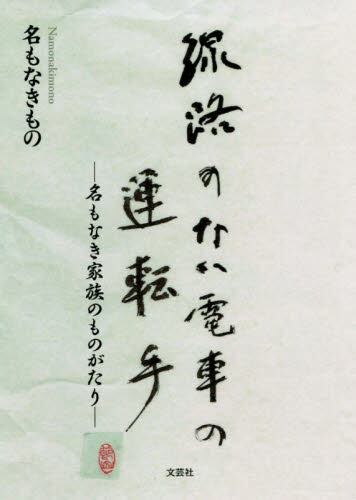 線路のない電車の
運転手
―名もなき家族のものがたり―
名もなきもの
Namonakimono
文芸社